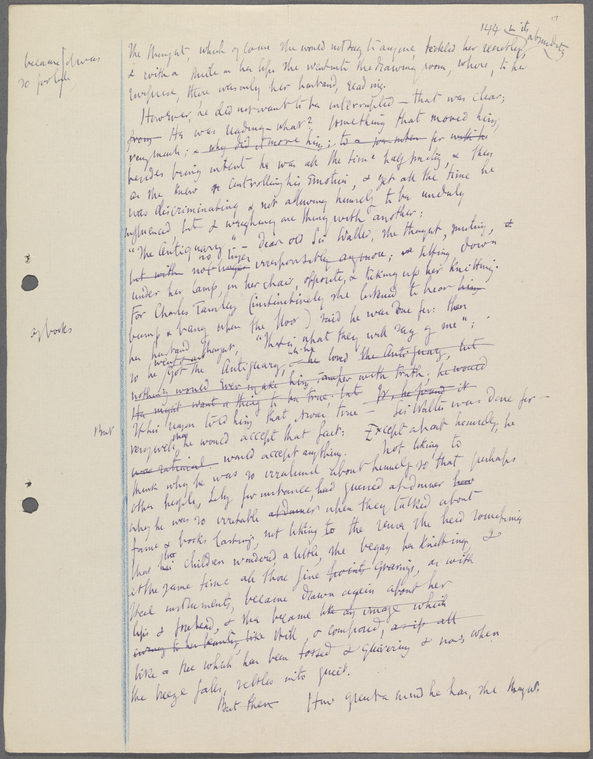 144 & its
absurdity
because he was
so
The thought, which of course she would not say to anyone, tickled her secretly,
& with a smile on her lips she went into the drawing room, where, to her
surprise, there was only her husband, reading.
However, he did not want to be interrupted – that was clear;
from He was reading – what? Something that moved him,
& why did it move him; to for
besides being intent he was all the time half smiling, & then
as she knew controlling his emotion, & yet all the time he
was discriminating & not allowing himself to be unduly
influenced but & weighing one thing with another:
"The Antiquary": – dear old Sir Walter, she thought, smiling, &
but with no longer irresponsibly anymore; sitting down
under her lamp, in her chair, opposite, & taking up her knitting.
For Charles Tansley (instinctively she listened to hear him
bump & bang upon the floor) said he was done for: then
her husband thought, "That's what they will say of me";
of books
so he went & got the Antiquary, – he loved the Antiquary, but
nothing would ever make him tamper with truth. he would
He might want a thing to be true; but If he found it
But
If his reason told him that it was true – Sir Walter was done for –
he would accept that fact: Except about himself, he
was rational would accept anything. Not liking to
think why he was so irrational about himself so that perhaps
other people, Lily for instance had guessed at dinner how
why he was so irritable at dinner when they talked about
fame & books lasting, not liking to the sense she had something
that his children wondered a little, she began her knitting, &
at the same time all those fine gravings, as with
steel instruments, became drawn again about her
lips & forehead, & she became like an image which
owing to her beauty, like still, & composed, as if all
like a tree which has been tossed & quivering & now when
the breeze falls, settles into quiet.
But then How great a mind he has, she thought.